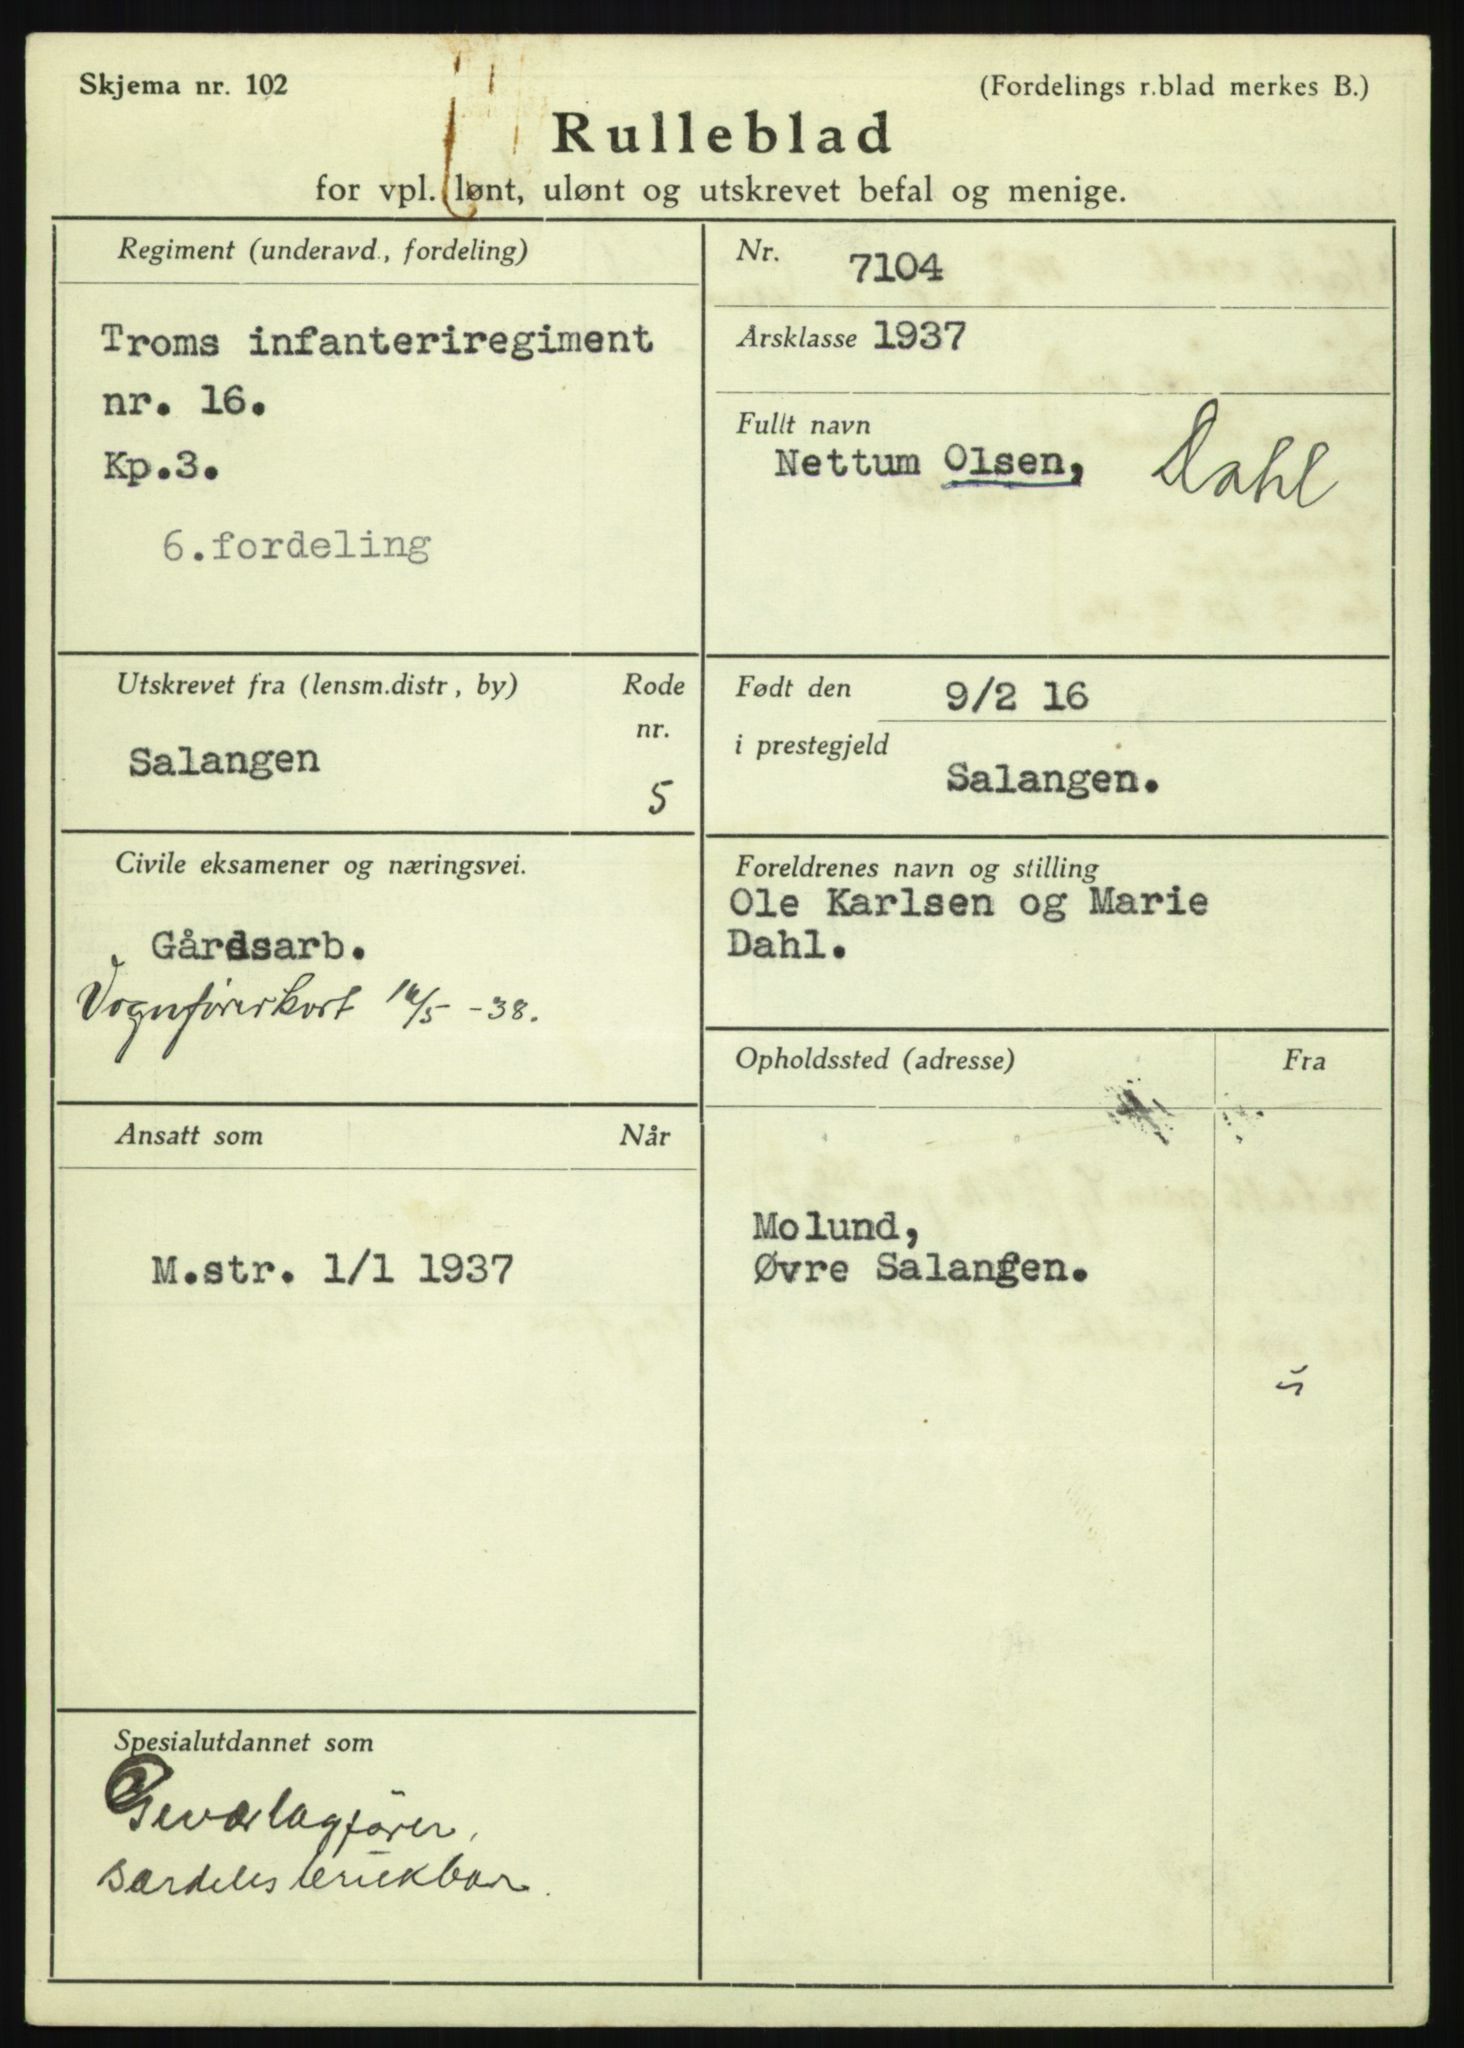 Skjema nr. 102
(Fordelings r.blad merkes B.)
Rulleblad
for vpl. lønt, ulønt og utskrevet befal og menige.
Regiment (underavd., fordeling)
Troms infanteriregiment
nr. 16.
Kp.3.
6.fordeling
Nr. 7104
Årsklasse 1937
Fullt navn
Nettum Olsen, Dahl
Utskrevet fra (lensm.distr, by)
Rode
nr.
Salangen
5
Født den 9/2 16
i prestegjeld
Salangen.
Civile eksamener og næringsvei.
Gårdsarb.
Vognførerkort 16/5 -38.
Foreldrenes navn og stilling
Ole Karlsen og Marie
Dahl.
Ansatt som
Når
M.str. 1/1 1937
Opholdssted (adresse)
Fra
Molund,
Øvre Salangen.
Spesialutdannet som
Geværlagfører,
særdeles brukbar.